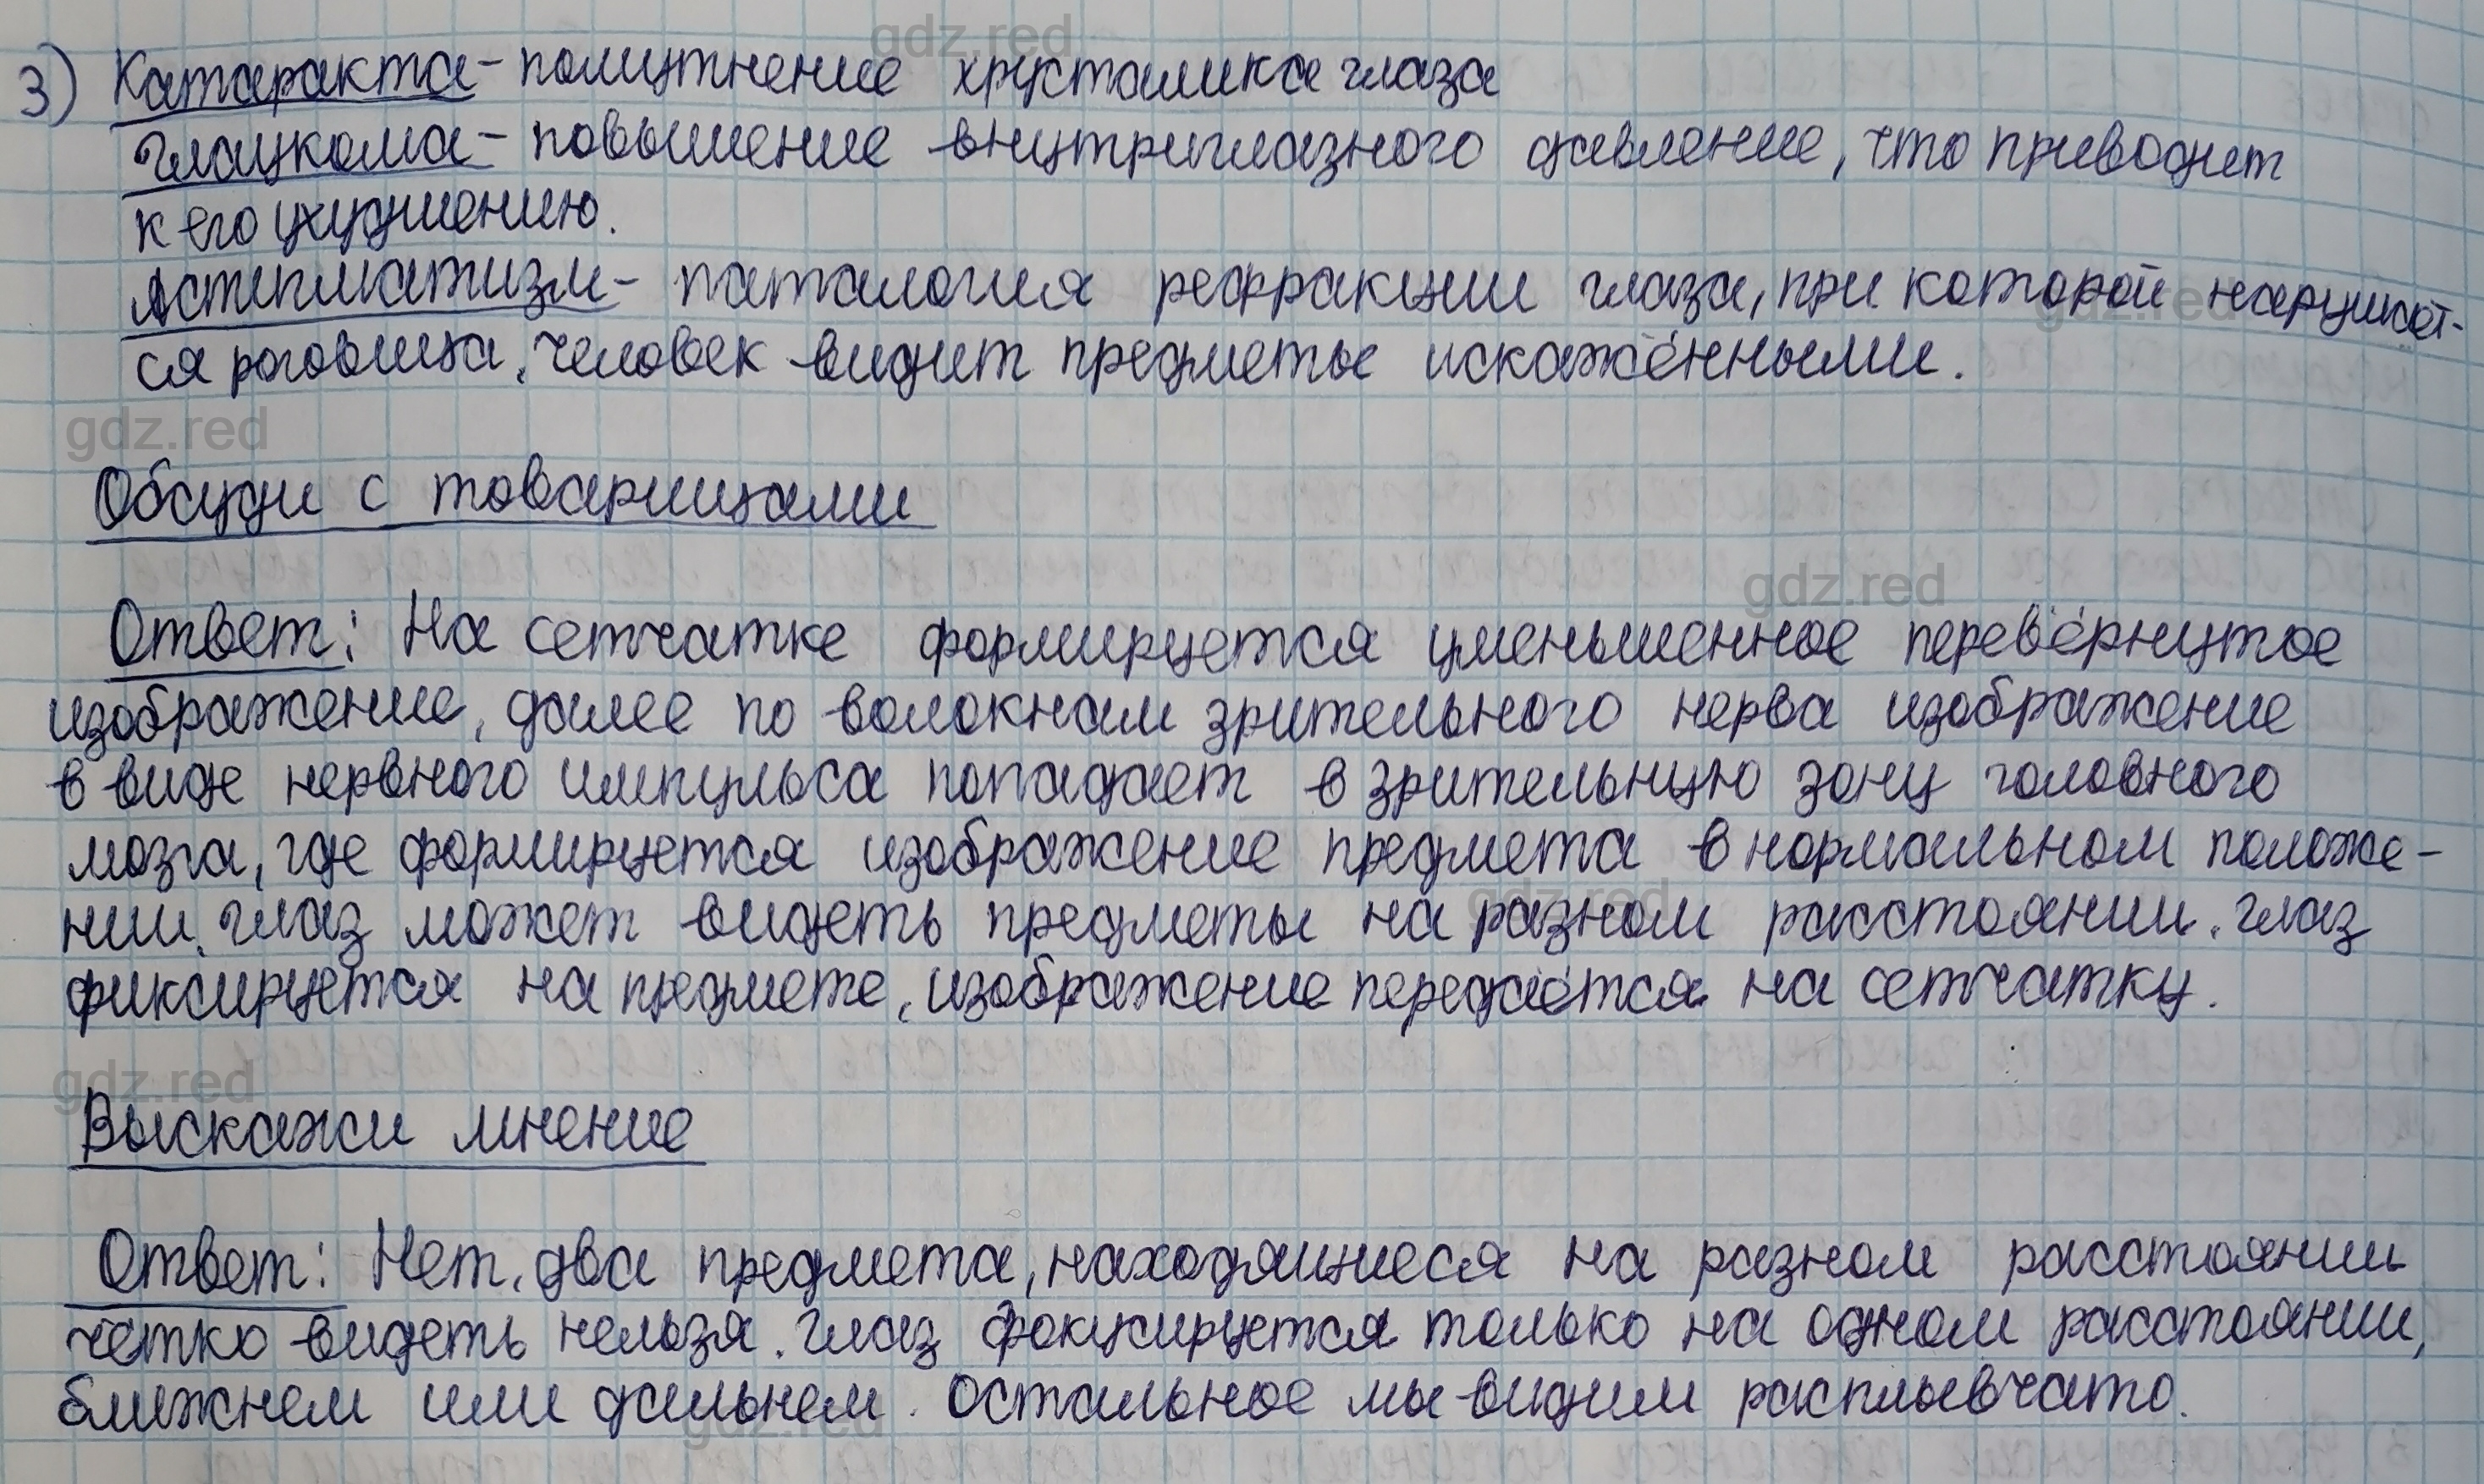 3) Катаракта - помутнение хрусталика глаза
глаукома - повышение внутриглазного давление, что приводит
к его ухудшению.
Астигматизм - паталогия рефракции глаза, при которой нарушает-
ся роговица, человек видит предметы искажёнными.
Обсуди с товарищами
Ответ: На сетчатке формируется уменьшенное перевёрнутое
изображение, далее по волокнам зрительного нерва изображение
в виде нервного импульса попадает в зрительную зону головного
мозга, где формируется изображение предмета в нормальном положе-
нии. глаз может видеть предметы на разном расстоянии. глаз
фиксируется на предмете, изображение передаётся на сетчатку.
Выскажи мнение
Ответ: Нет, два предмета, находящиеся на разном расстоянии
чётко видеть нельзя. глаз фокусируется только на одном расстоянии,
ближнем или дальнем. Остальное мы видим расплывчато.
gdz.red
gdz.red
gdz.red
gdz.red
gdz.red
gdz.red
gdz.red